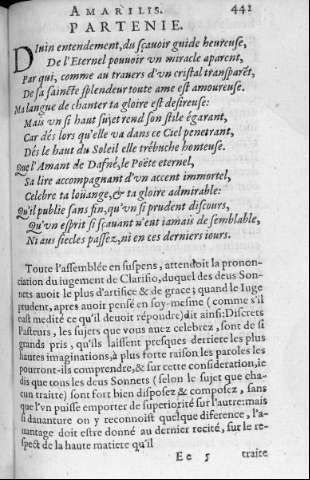 AMARILIS. 441
PARTENIE.
DIuin entendement, du sçauoir guide heureuse,
De l'Eternel pouuoir vn miracle aparent,
Par qui, comme au trauers d'vn cristal transparẽt,
De sa saincte splendeur toute ame est amoureuse.
Ma langue de chanter ta gloire est desireuse:
Mais vn si haut sujet rend son stile égarant,
Car dés lors qu'elle va dans ce Ciel penetrant,
Dés le haut du Soleil elle trébuche honteuse.
Que l'Amant de Dafné, le Poëte eternel,
Sa lire accompagnant d'vn accent immortel,
Celebre ta loüange, & ta gloire admirable:
Qu'il publie sans fin, qu'vn si prudent discours,
Qu'vn esprit si sçauant n'eut iamais de semblable,
Ni aus siecles passez, ni en ces derniers iours.
Toute l'assemblée en suspens, attendoit la pronon-
ciation du iugement de Clarisio, duquel des deus Son-
nets auoit le plus d'artifice & de grace; quand le Iuge
prudent, apres auoir pensé en soy-mesme (comme s'il
eut medité ce qu'il deuoit répondre) dit ainsi: Discrets
Pasteurs, les sujets que vous auez celebrez, sont de si
grands pris, qu'ils laissent presques derriere les plus
hautes imaginations, à plus forte raison les paroles les
pourront-ils comprendre, & sur cette consideration, ie
dis que tous les deus Sonnets (selon le sujet que cha-
cun traitte) sont fort bien disposez & composez, sans
que l'vn puisse emporter de superiorité sur l'autre: mais
si dauanture on y reconnoist quelque diference, l'a-
uantage doit estre donné au dernier recité, sur le re-
spect de la haute matiere qu'il
Ee 5 traite